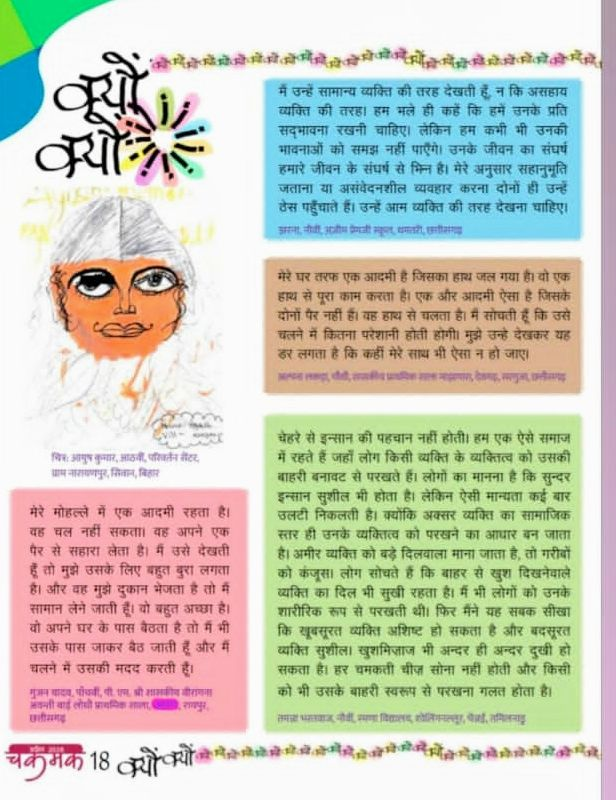 क्यों
क्यों
मैं उन्हें सामान्य व्यक्ति की तरह देखती हूँ, न कि असहाय
व्यक्ति की तरह। हम भले ही कहें कि हमें उनके प्रति
सद्भावना रखनी चाहिए। लेकिन हम कभी भी उनकी
भावनाओं को समझ नहीं पाएँगे। उनके जीवन का संघर्ष
हमारे जीवन के संघर्ष से भिन्न है। मेरे अनुसार सहानुभूति
जताना या असंवेदनशील व्यवहार करना दोनों ही उन्हें
ठेस पहुँचाते हैं। उन्हें आम व्यक्ति की तरह देखना चाहिए।
झरना, नौवीं, अज़ीम प्रेमजी स्कूल, धमतरी, छत्तीसगढ़
मेरे घर तरफ एक आदमी है जिसका हाथ जल गया है। वो एक
हाथ से पूरा काम करता है। एक और आदमी ऐसा है जिसके
दोनों पैर नहीं हैं। वह हाथ से चलता है। मैं सोचती हूँ कि उसे
चलने में कितना परेशानी होती होगी। मुझे उन्हे देखकर यह
डर लगता है कि कहीं मेरे साथ भी ऐसा न हो जाए।
अल्पना लकड़ा, चौथी, शासकीय प्राथमिक शाला छत्तीसगढ़
चित्र: आयुष कुमार, आठवीं, परिवर्तन सेंटर,
ग्राम नारायणपुर, सिवान, बिहार
मेरे मोहल्ले में एक आदमी रहता है।
वह चल नहीं सकता। वह अपने एक
पैर से सहारा लेता है। मैं उसे देखती
हूँ तो मुझे उसके लिए बहुत बुरा लगता
है। और वह मुझे दुकान भेजता है तो मैं
सामान लेने जाती हूँ। वो बहुत अच्छा है।
वो अपने घर के पास बैठता है तो मैं भी
उसके पास जाकर बैठ जाती हूँ और मैं
चलने में उसकी मदद करती हूँ।
गुंजन यादव, पाँचवीं, पी. एम. श्री शासकीय वीरांगना
अवन्ती बाई लोधी प्राथमिक शाला, रायपुर,
छत्तीसगढ़
चेहरे से इन्सान की पहचान नहीं होती। हम एक ऐसे समाज
में रहते हैं जहाँ लोग किसी व्यक्ति के व्यक्तित्व को उसकी
बाहरी बनावट से परखते हैं। लोगों का मानना है कि सुन्दर
इन्सान सुशील भी होता है। लेकिन ऐसी मान्यता कई बार
उलटी निकलती है। क्योंकि अक्सर व्यक्ति का सामाजिक
स्तर ही उनके व्यक्तित्व को परखने का आधार बन जाता
है। अमीर व्यक्ति को बड़े दिलवाला माना जाता है, तो गरीबों
को कंजूस। लोग सोचते हैं कि बाहर से खुश दिखनेवाले
व्यक्ति का दिल भी सुखी रहता है। मैं भी लोगों को उनके
शारीरिक रूप से परखती थी। फिर मैंने यह सबक सीखा
कि खूबसूरत व्यक्ति अशिष्ट हो सकता है और बदसूरत
व्यक्ति सुशील। खुशमिज़ाज भी अन्दर ही अन्दर दुखी हो
सकता है। हर चमकती चीज़ सोना नहीं होती और किसी
को भी उसके बाहरी स्वरूप से परखना गलत होता है।
तमन्ना भारतवाज, नौवीं, विद्यालय, शोलिंगनल्लूर, चेन्नई, तमिलनाडु
चकमक 18 क्यों क्यों